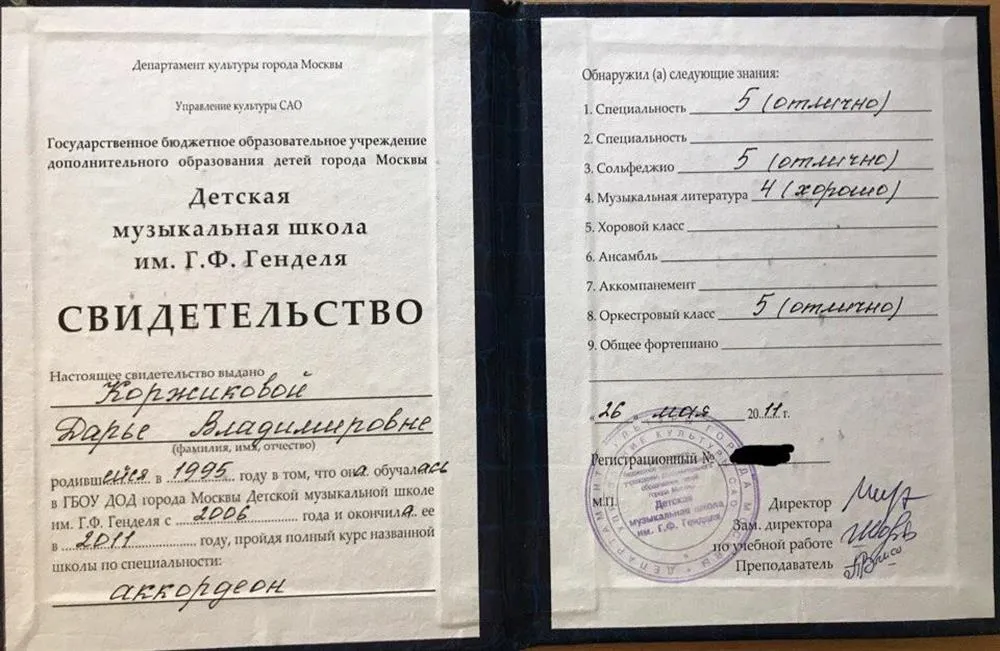 Департамент культуры города Москвы
Управление культуры САО
Государственное бюджетное образовательное учреждение
дополнительного образования детей города Москвы
Детская
музыкальная школа
им. Г.Ф. Генделя
СВИДЕТЕЛЬСТВО
Настоящее свидетельство выдано
Коржиковой
Дарье Владимировне
(фамилия, имя, отчество)
родившейся в 1995 году в том, что она обучалась
в ГБОУ ДОД города Москвы Детской музыкальной школе
им. Г.Ф. Генделя с 2006 года и окончила ее
в 2011 году, пройдя полный курс названной
школы по специальности:
аккордеон
Обнаружил (а) следующие знания:
1. Специальность 5 (отлично)
2. Специальность
3. Сольфеджио 5 (отлично)
4. Музыкальная литература 4 (хорошо)
5. Хоровой класс
6. Ансамбль
7. Аккомпанемент
8. Оркестровый класс 5 (отлично)
9. Общее фортепиано
"26" мая 2011 г.
Регистрационный №
М.П.
Директор
Зам. директора
по учебной работе
Преподаватель
Детская
музыкальная школа
им. Г.Ф. Генделя